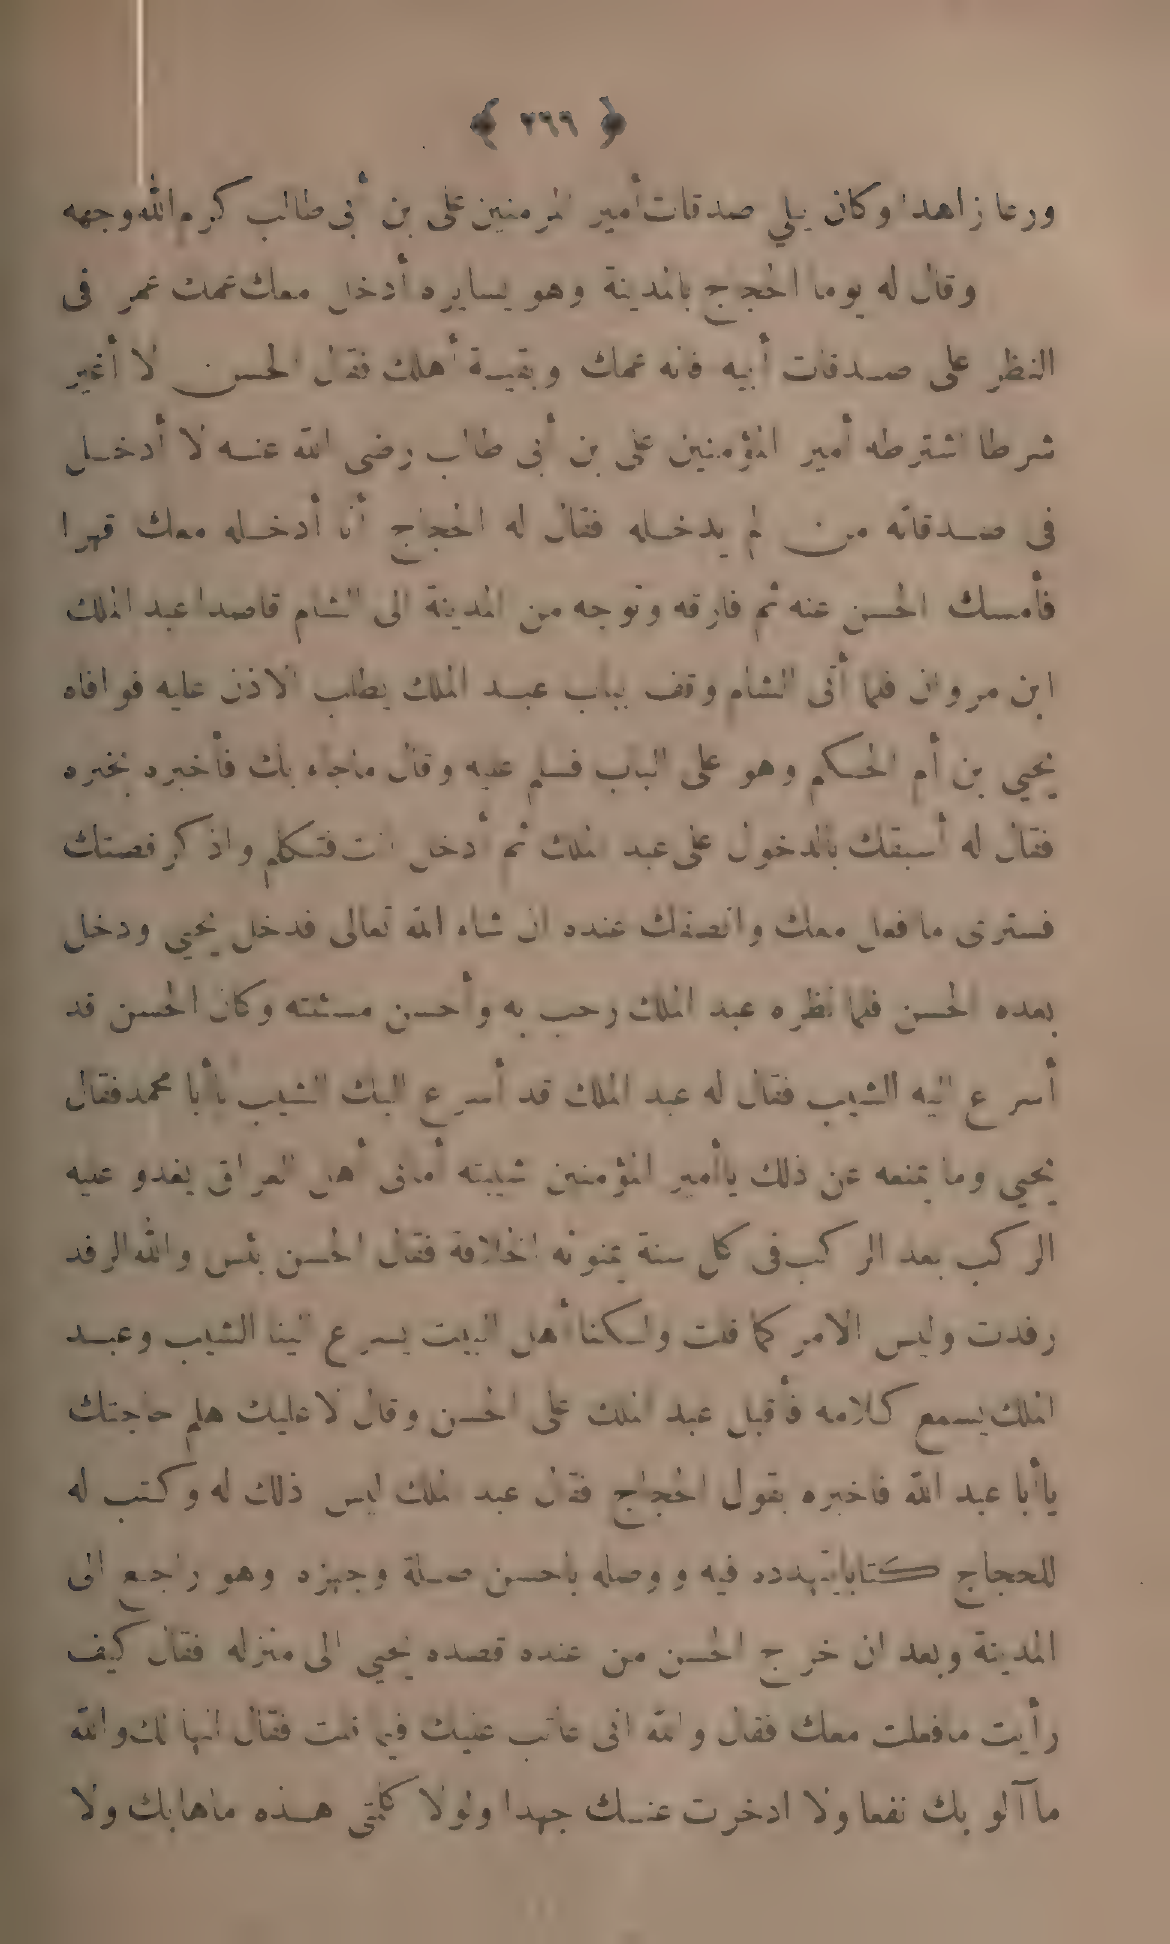 ﴿ ٢٦٦ ﴾
ورعا زاهدا وكان يلي صدقات أمير المؤمنين على بن أبى طالب كرم الله وجهه
وقال له يوما الحجاج بالمدينة وهو يسايره أدخل معك عمك عمر فى
النظر على صدقات أبيه فانه عمك وبقية أهلك فقال الحسن لا أغير
شرطا اشترطه أمير المؤمنين على بن أبى طالب رضى الله عنه لا أدخل
فى صدقاته من لم يدخله فقال له الحجاج أنا أدخله معك قهرا
فأمسك الحسن عنه ثم فارقه وتوجه من المدينة الى الشام قاصدا عبد الملك
ابن مروان فلما أتى الشام وقف بباب عبد الملك يطلب الاذن عليه فوافاه
يحيى بن أم الحكم وهو على الباب فسلم عليه وقال ماجاء بك فأخبره بخبره
فقال له أسبقك بالدخول على عبد الملك ثم أدخل انت فتكلم واذكر قصتك
فسترى ما فعل معك وانصفك عنده ان شاء الله تعالى فدخل يحيى ودخل
بعده الحسن فلما نظره عبد الملك رحب به وأحسن مسئلته وكان الحسن قد
أسرع اليه الشيب فقال له عبد الملك قد أسرع اليك الشيب ياأبا محمد فقال
يحيى وما يمنعه عن ذلك ياأمير المؤمنين شيبته أمانى أهل العراق يغدو عليه
الركب بعد الركب فى كل سنة يمنونه الخلافة فقال الحسن بئس والله الرفد
رفدت وليس الامر كما قلت ولكنا أهل البيت يسرع الينا الشيب وعبد
الملك يسمع كلامه فأقبل عبد الملك على الحسن وقال لاعليك هلم حاجتك
ياأبا عبد الله فاخبره بقول الحجاج فقال عبد الملك ليس ذلك له وكتب له
للحجاج كتابا يتهدده فيه ووصله باحسن صلة وجهزه وهو راجع الى
المدينة وبعد ان خرج الحسن من عنده قصده يحيى الى منزله فقال كيف
رأيت مافعلت معك فقال والله انى عاتب عليك فيما قلت فقال انها لك والله
ماآلو بك نفعا ولا ادخرت عنك جهدا ولولا كلمتى هذه ماهابك ولا